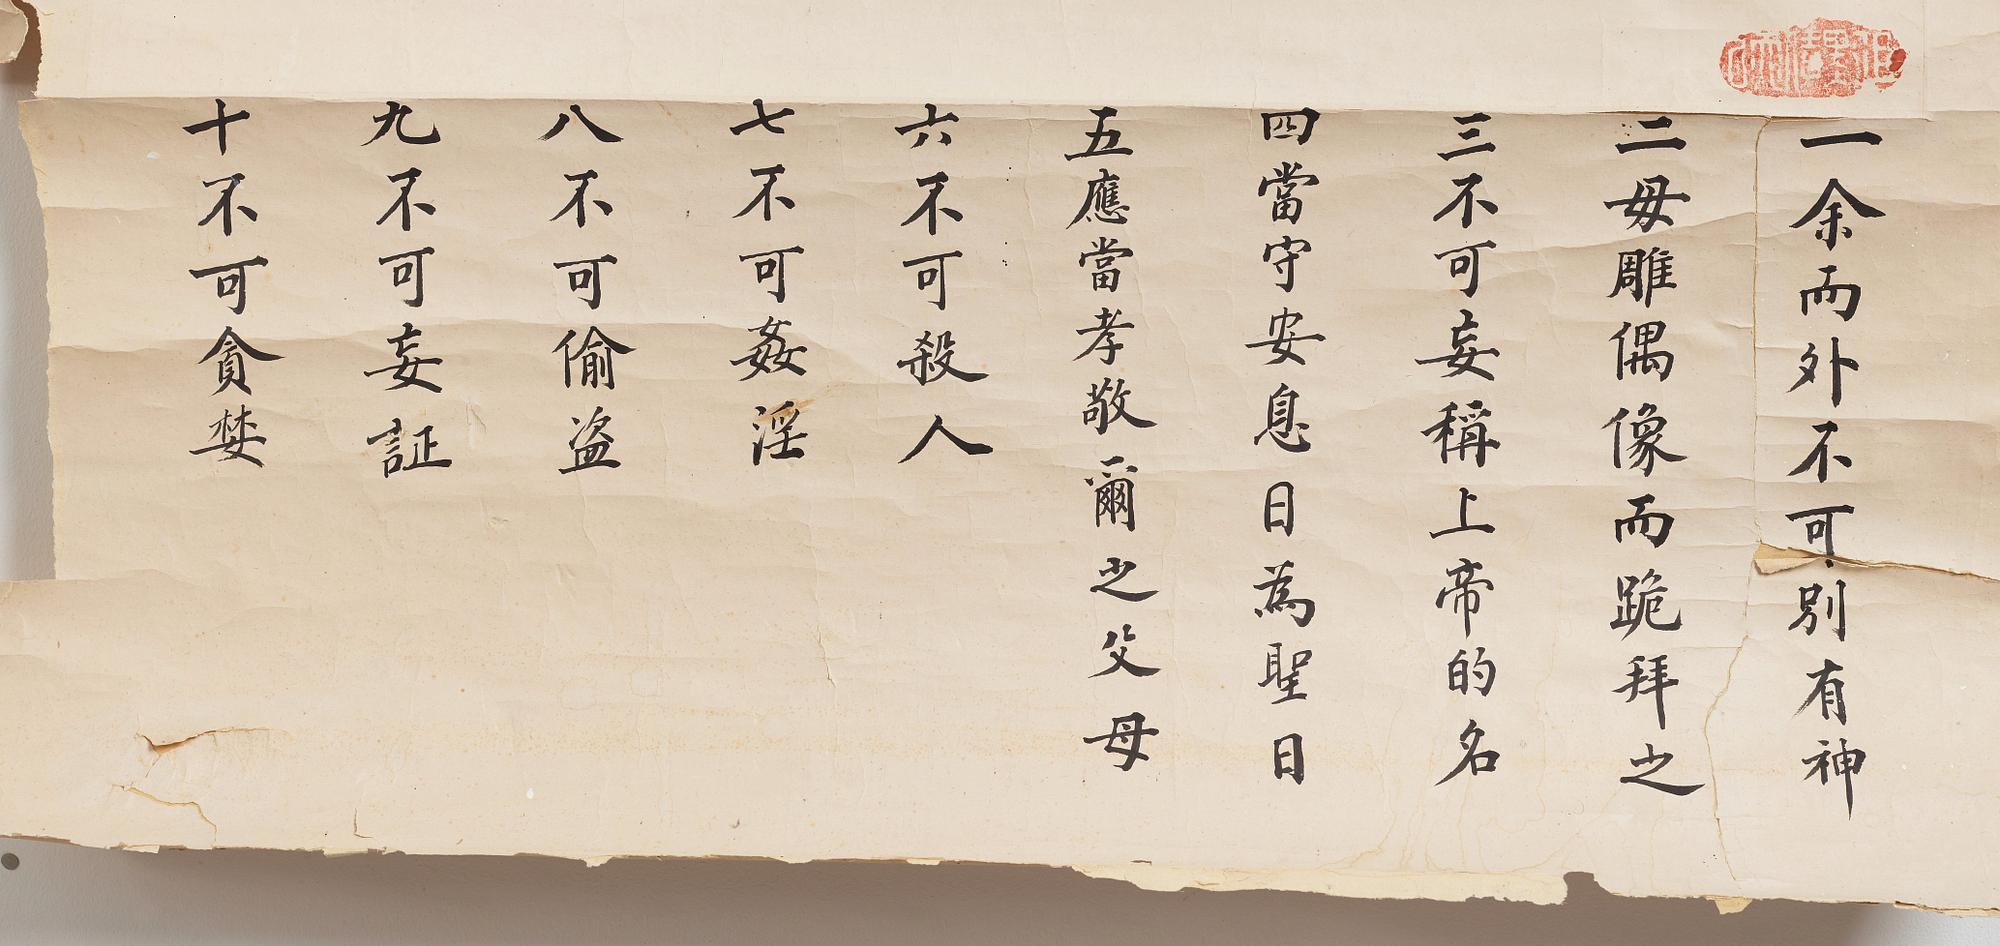 一余而外不可別有神
二毋雕偶像而跪拜之
三不可妄稱上帝的名
四當守安息日為聖日
五應當孝敬爾之父母
六不可殺人
七不可姦淫
八不可偷盗
九不可妄証
十不可貪婪